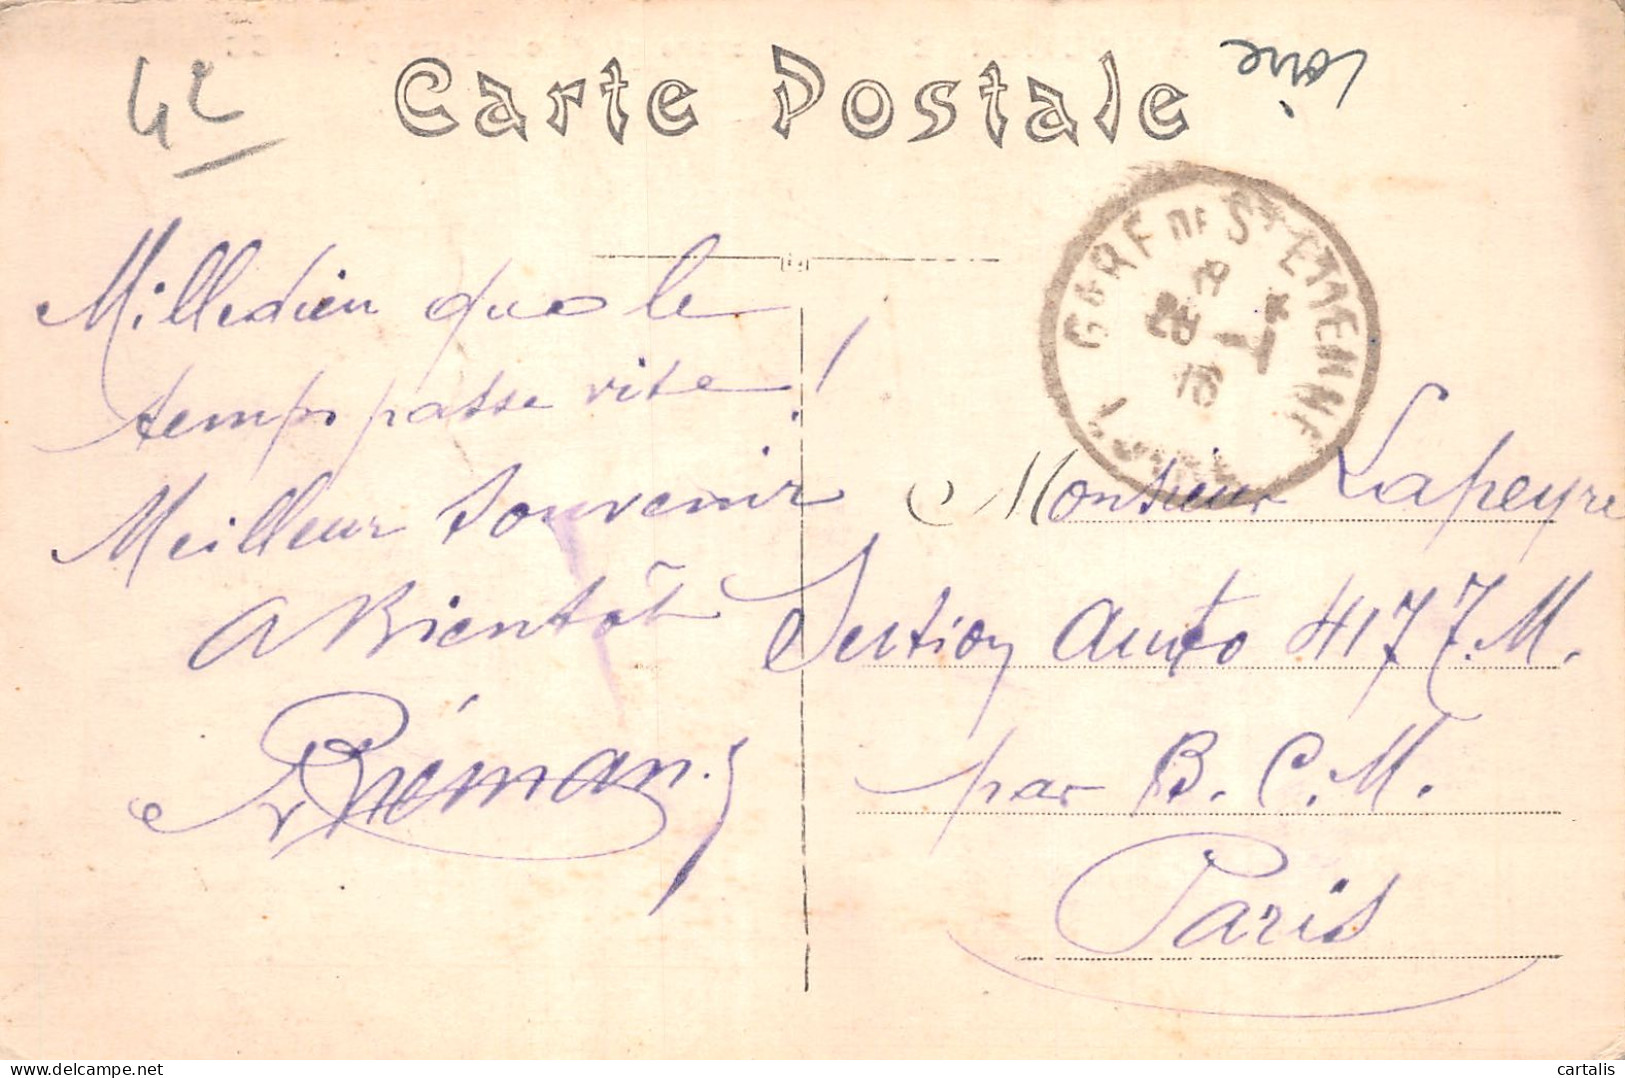 42
Carte Postale
Loire
GARE DE ST ETIENNE
8
26 - 1
16
LOIRE
Milledieu que le
temps passe vite !
Meilleur souvenir
A Bientôt
Rhéman
Monsieur Lapeyre
Section Auto 417 T.M.
par B.C.M.
Paris
cartalis